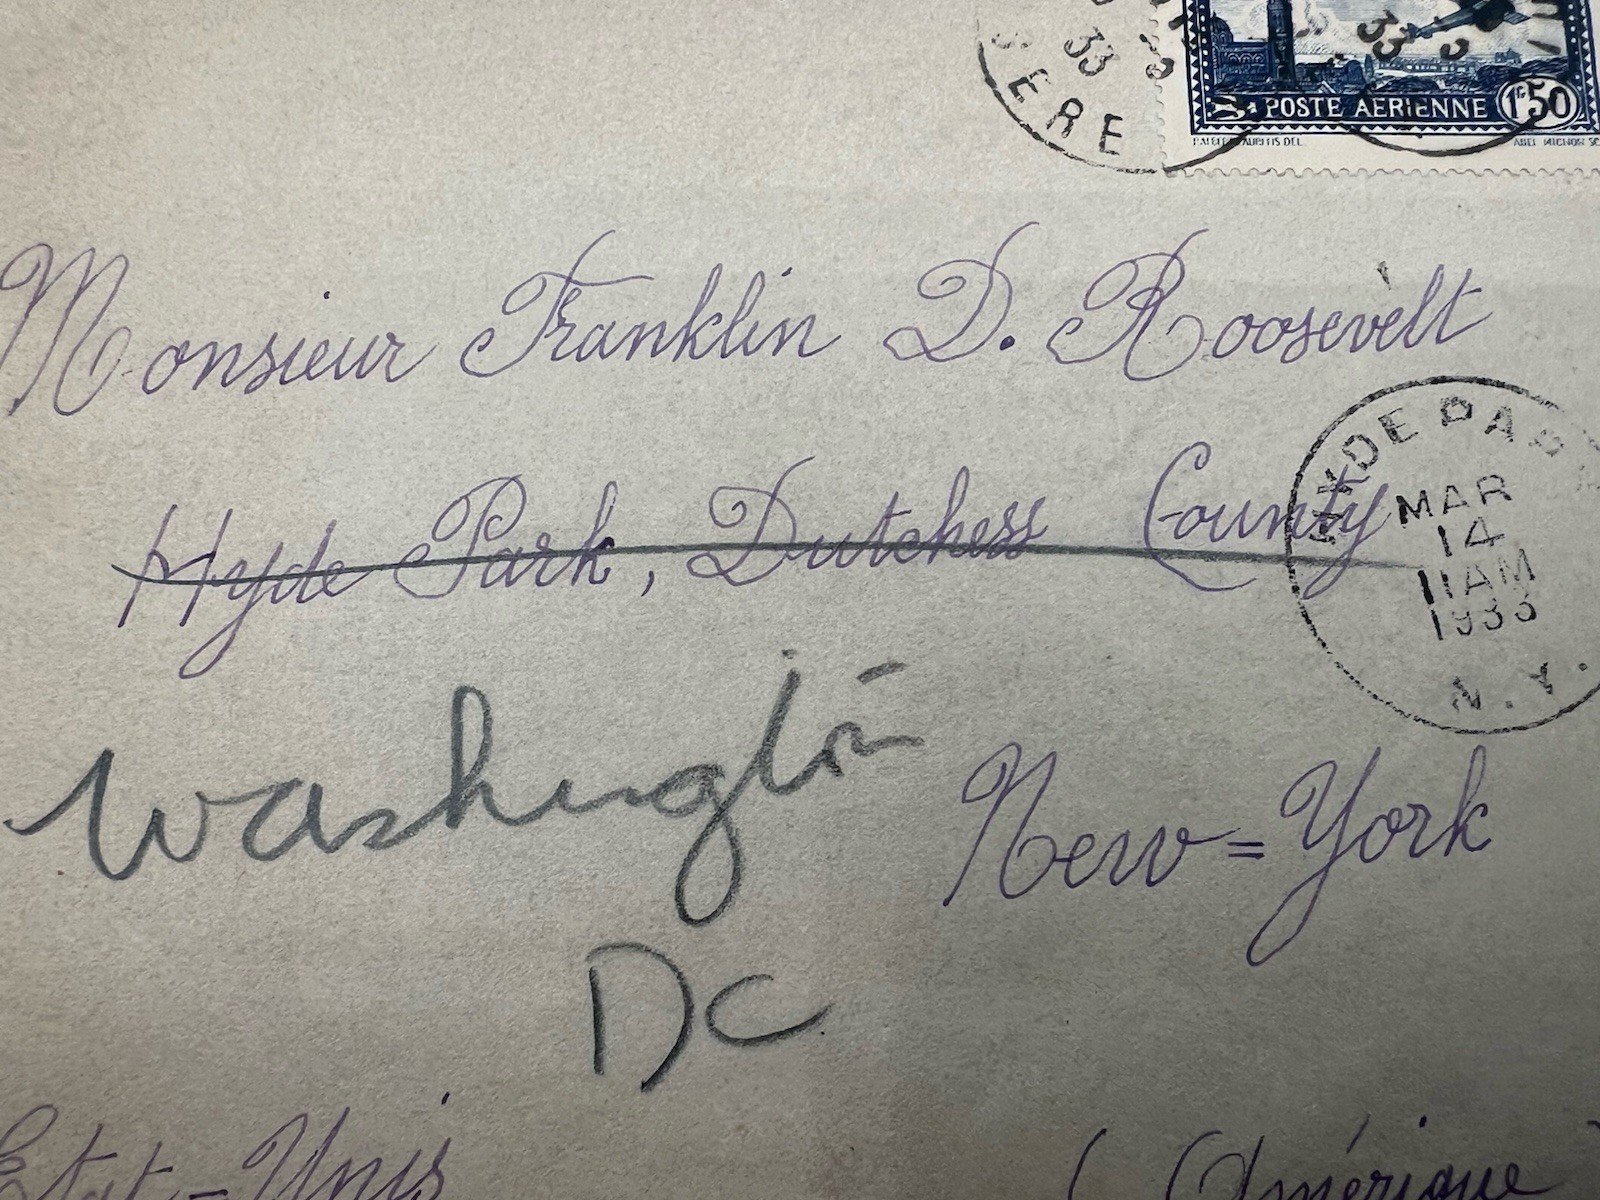 33
ISERE
33
POSTE AERIENNE 1F50
Monsieur Franklin D. Roosevèlt
Hyde Park, Dutchess County
HYDE PARK
MAR
14
11 AM
1933
N.Y.
Washington
DC
New=York
Etat=Unis
(Amérique)